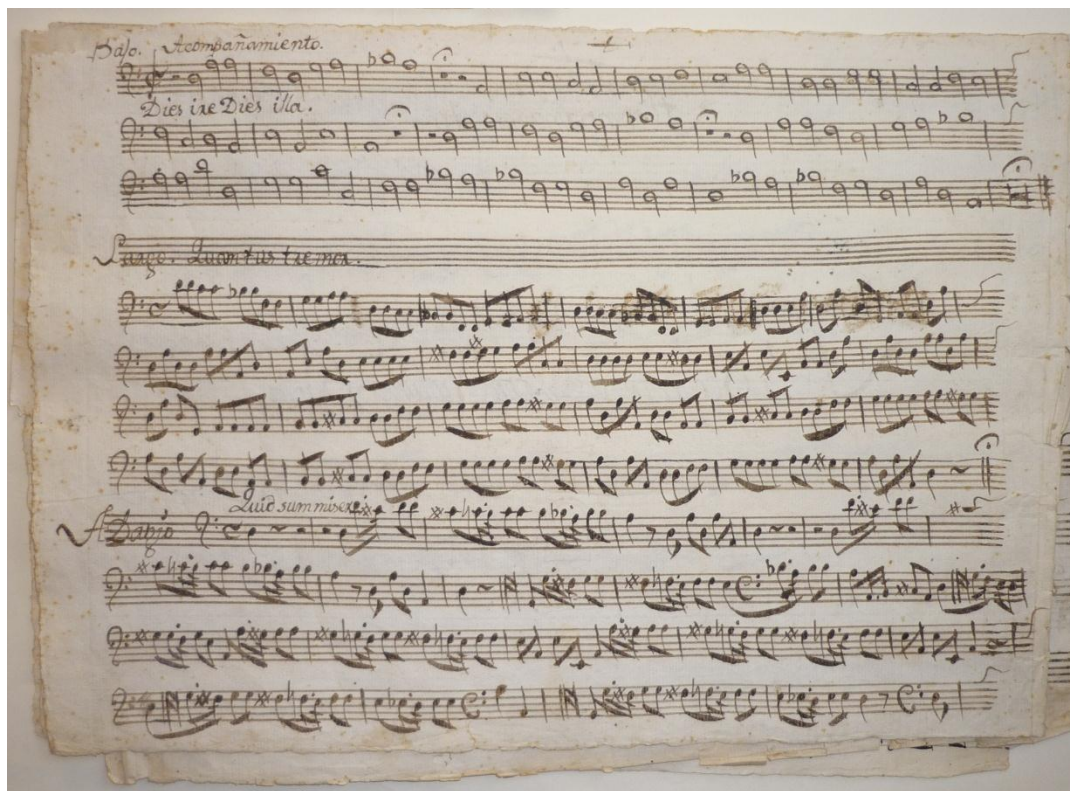 Bajo. Acompañamiento.
Dies ire Dies illa.
Largo. Quantus tremor.
Quid sum miser
Adagio